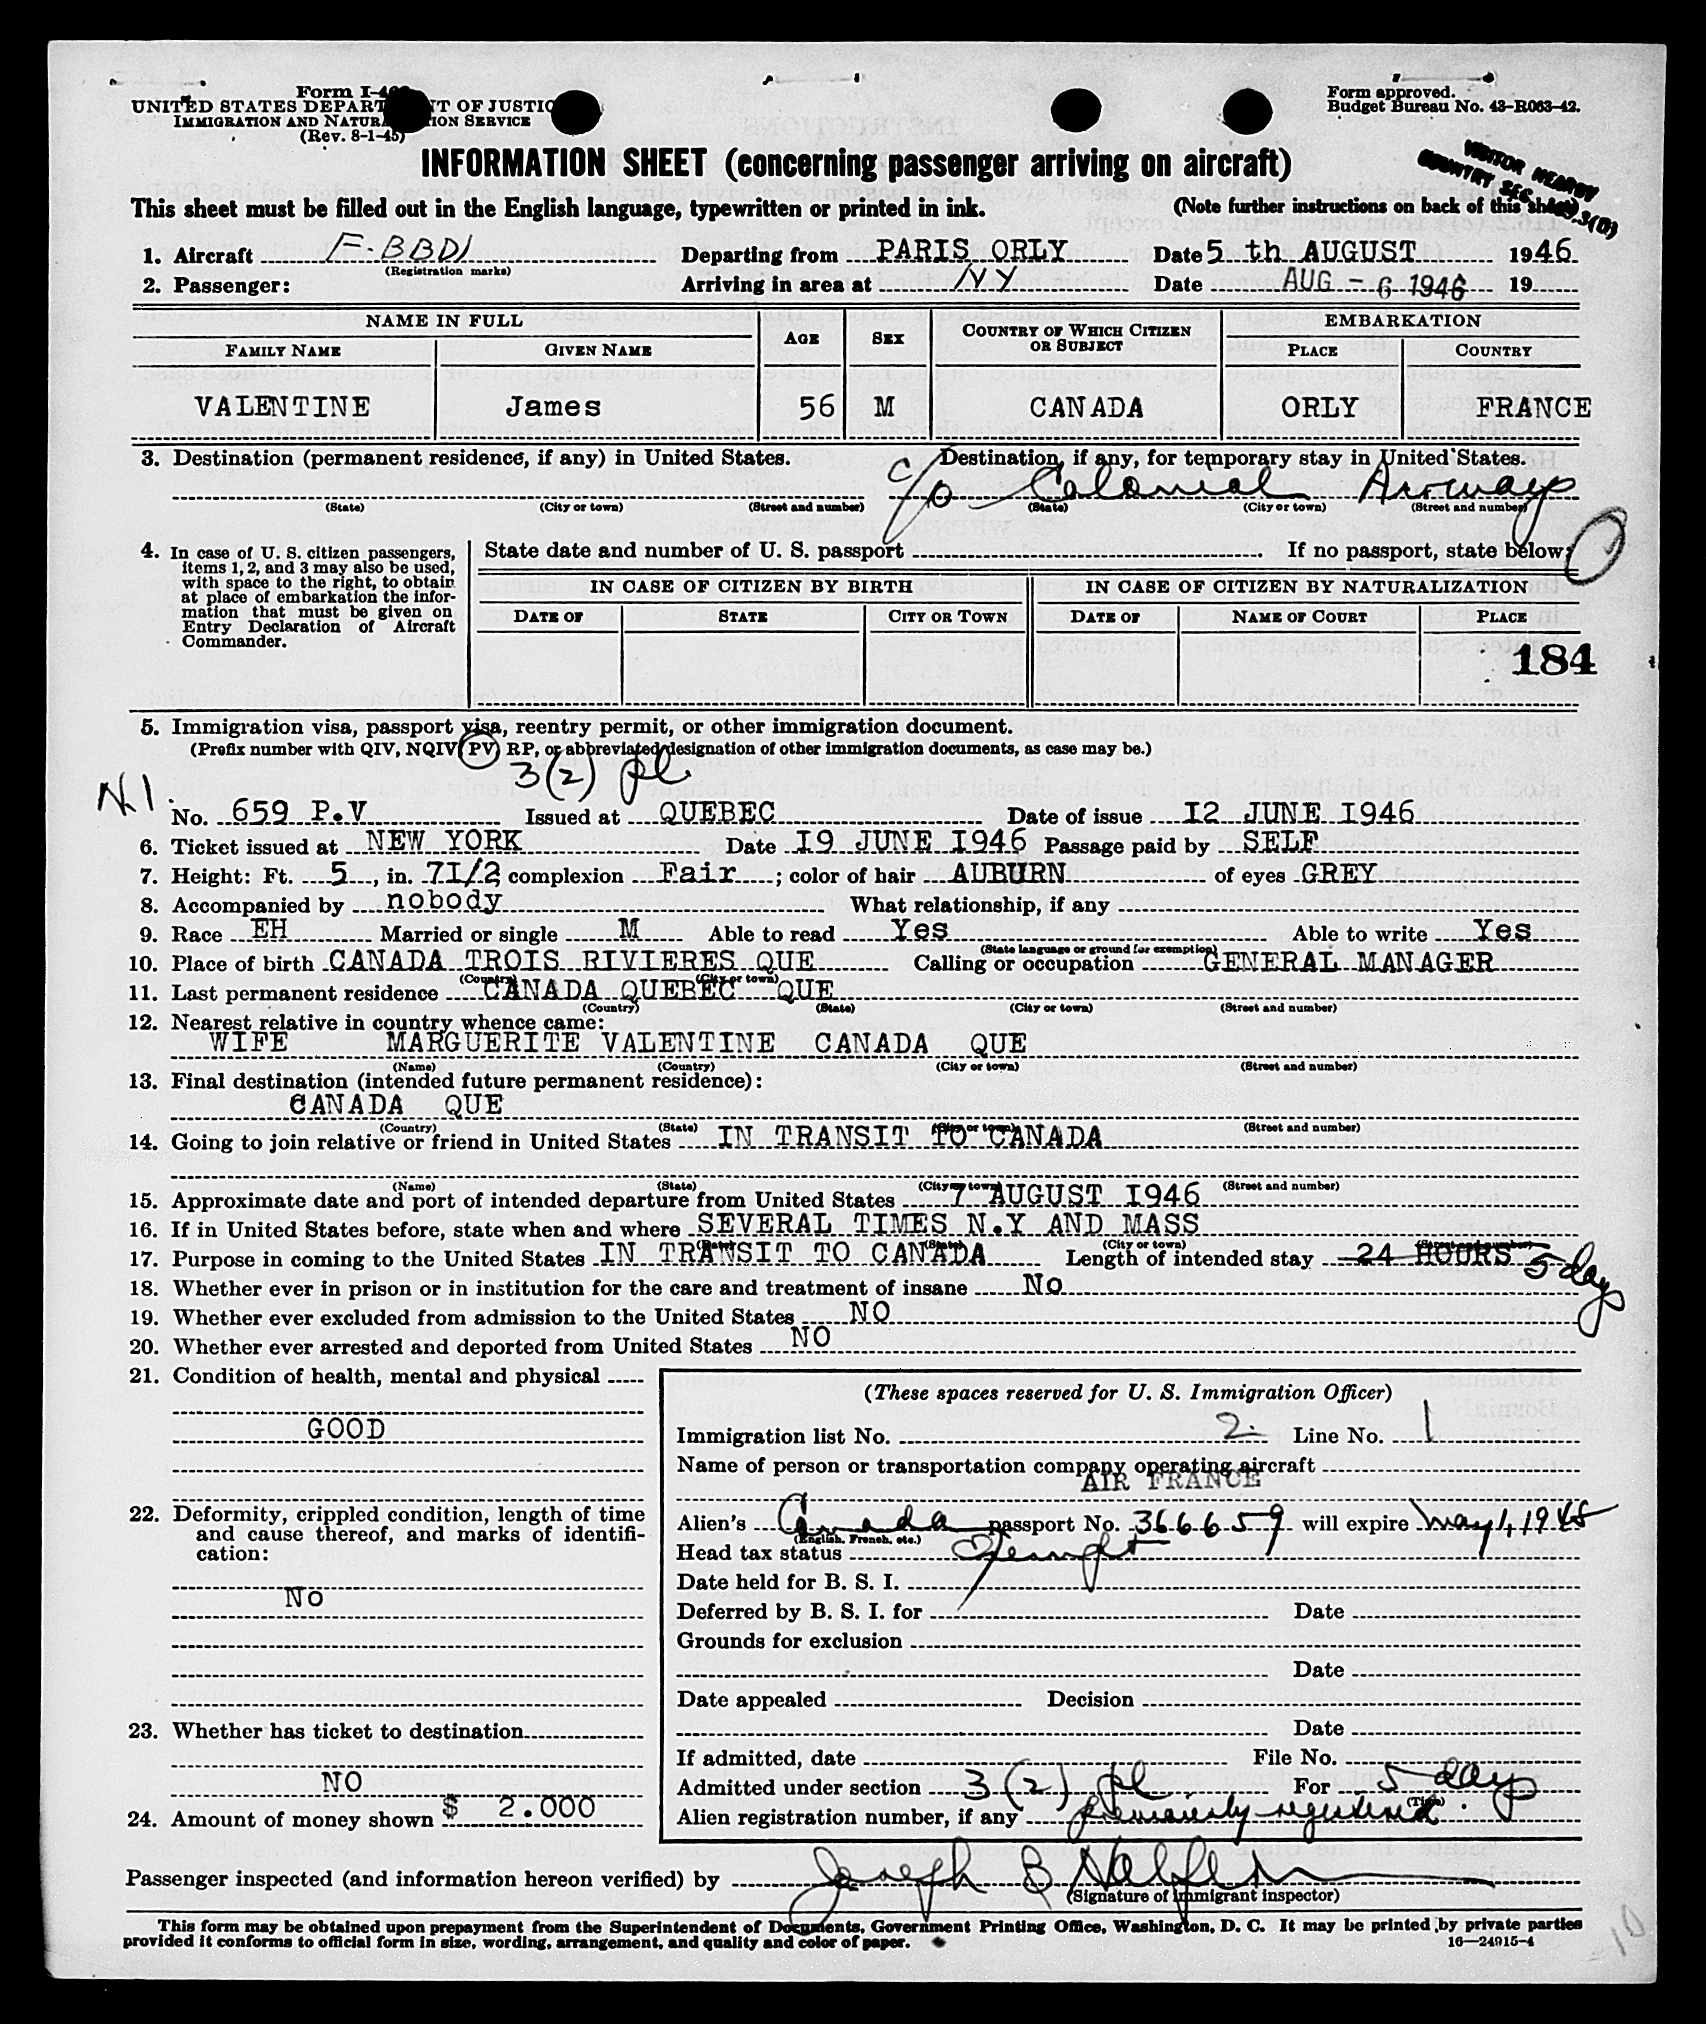 Form I-4
UNITED STATES DEPART T OF JUSTIC
IMMIGRATION AND NATUR ION SERVICE
(Rev. 8-1-45)
Form approved.
Budget Bureau No. 43-R063-42.
INFORMATION SHEET (concerning passenger arriving on aircraft)
VISITOR NEARBY
COUNTRY SEC. 3(B)
This sheet must be filled out in the English language, typewritten or printed in ink. (Note further instructions on back of this sheet)
1. Aircraft F-BBDI Departing from PARIS ORLY Date 5 th AUGUST 1946
(Registration marks)
2. Passenger: Arriving in area at NY Date AUG - 6 1946 19
NAME IN FULL AGE SEX COUNTRY OF WHICH CITIZEN OR SUBJECT EMBARKATION
FAMILY NAME GIVEN NAME PLACE COUNTRY
VALENTINE James 56 M CANADA ORLY FRANCE
3. Destination (permanent residence, if any) in United States. Destination, if any, for temporary stay in United States.
c/o Colonial Airways
(State) (City or town) (Street and number) (State) (City or town) (Street and number)
4. In case of U. S. citizen passengers,
items 1, 2, and 3 may also be used,
with space to the right, to obtain
at place of embarkation the infor-
mation that must be given on
Entry Declaration of Aircraft
Commander.
State date and number of U. S. passport . If no passport, state below:
IN CASE OF CITIZEN BY BIRTH IN CASE OF CITIZEN BY NATURALIZATION
DATE OF STATE CITY OR TOWN DATE OF NAME OF COURT PLACE
184
5. Immigration visa, passport visa, reentry permit, or other immigration document.
(Prefix number with QIV, NQIV, PV, RP, or abbreviated designation of other immigration documents, as case may be.)
3(2) pl.
N.I.
No. 659 P.V Issued at QUEBEC Date of issue I2 JUNE I946
6. Ticket issued at NEW YORK Date I9 JUNE I946 Passage paid by SELF
7. Height: Ft. 5, in. 7I/2 complexion Fair; color of hair AUBURN of eyes GREY
8. Accompanied by nobody What relationship, if any
9. Race EH Married or single M Able to read Yes Able to write Yes
(State language or ground for exemption)
10. Place of birth CANADA TROIS RIVIERES QUE Calling or occupation GENERAL MANAGER
(Country) (City or town)
11. Last permanent residence CANADA QUEBEC QUE
(Country) (State) (City or town) (Street and number)
12. Nearest relative in country whence came:
WIFE MARGUERITE VALENTINE CANADA QUE
(Name) (Country) (City or town) (Street and number)
13. Final destination (intended future permanent residence):
CANADA QUE
(Country) (State) (City or town) (Street and number)
14. Going to join relative or friend in United States IN TRANSIT TO CANADA
(Name) (State) (City or town) (Street and number)
15. Approximate date and port of intended departure from United States 7 AUGUST I946
16. If in United States before, state when and where SEVERAL TIMES N.Y AND MASS
(Date) (State) (City or town) (Street and number)
17. Purpose in coming to the United States IN TRANSIT TO CANADA Length of intended stay 24 HOURS 5 days
18. Whether ever in prison or in institution for the care and treatment of insane No
19. Whether ever excluded from admission to the United States NO
20. Whether ever arrested and deported from United States NO
21. Condition of health, mental and physical
GOOD
22. Deformity, crippled condition, length of time
and cause thereof, and marks of identifi-
cation:
No
23. Whether has ticket to destination
NO
24. Amount of money shown $ 2.000
(These spaces reserved for U. S. Immigration Officer)
Immigration list No. 2. Line No. 1
Name of person or transportation company operating aircraft
AIR FRANCE
Alien's Canada passport No. 366659 will expire May 1, 1948
(English, French, etc.)
Head tax status Exempt
Date held for B. S. I.
Deferred by B. S. I. for Date
Grounds for exclusion
Date
Date appealed Decision
Date
If admitted, date File No.
Admitted under section 3(2) pl For 5 days
(Time)
Alien registration number, if any previously registered.
Passenger inspected (and information hereon verified) by Joseph B Halpern
(Signature of immigrant inspector)
This form may be obtained upon prepayment from the Superintendent of Documents, Government Printing Office, Washington, D. C. It may be printed by private parties
provided it conforms to official form in size, wording, arrangement, and quality and color of paper.
16—24915-4
10